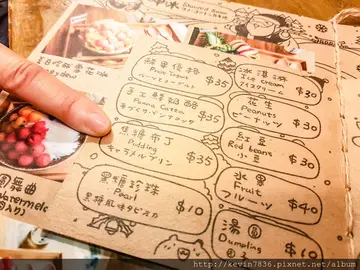 Shaved Snow
蘋果優格
Fruit Yogurt
$35
手工鮮奶酪
Panna Cotta
$35
焦糖布丁
Pudding
キャラメルプリン
$35
黑糖珍珠
Pearl
黒糖風味タピオカ
$10
冰淇淋
Ice cream
アイスクリーム
$30
花生
Peanuts
ピーナッツ
$30
紅豆
Red beans
小豆
$30
水果
Fruit
フルーツ
$40
湯圓
Dumpling
$10
圓舞曲
Watermelon
http://kevin7836.pixnet.net/album